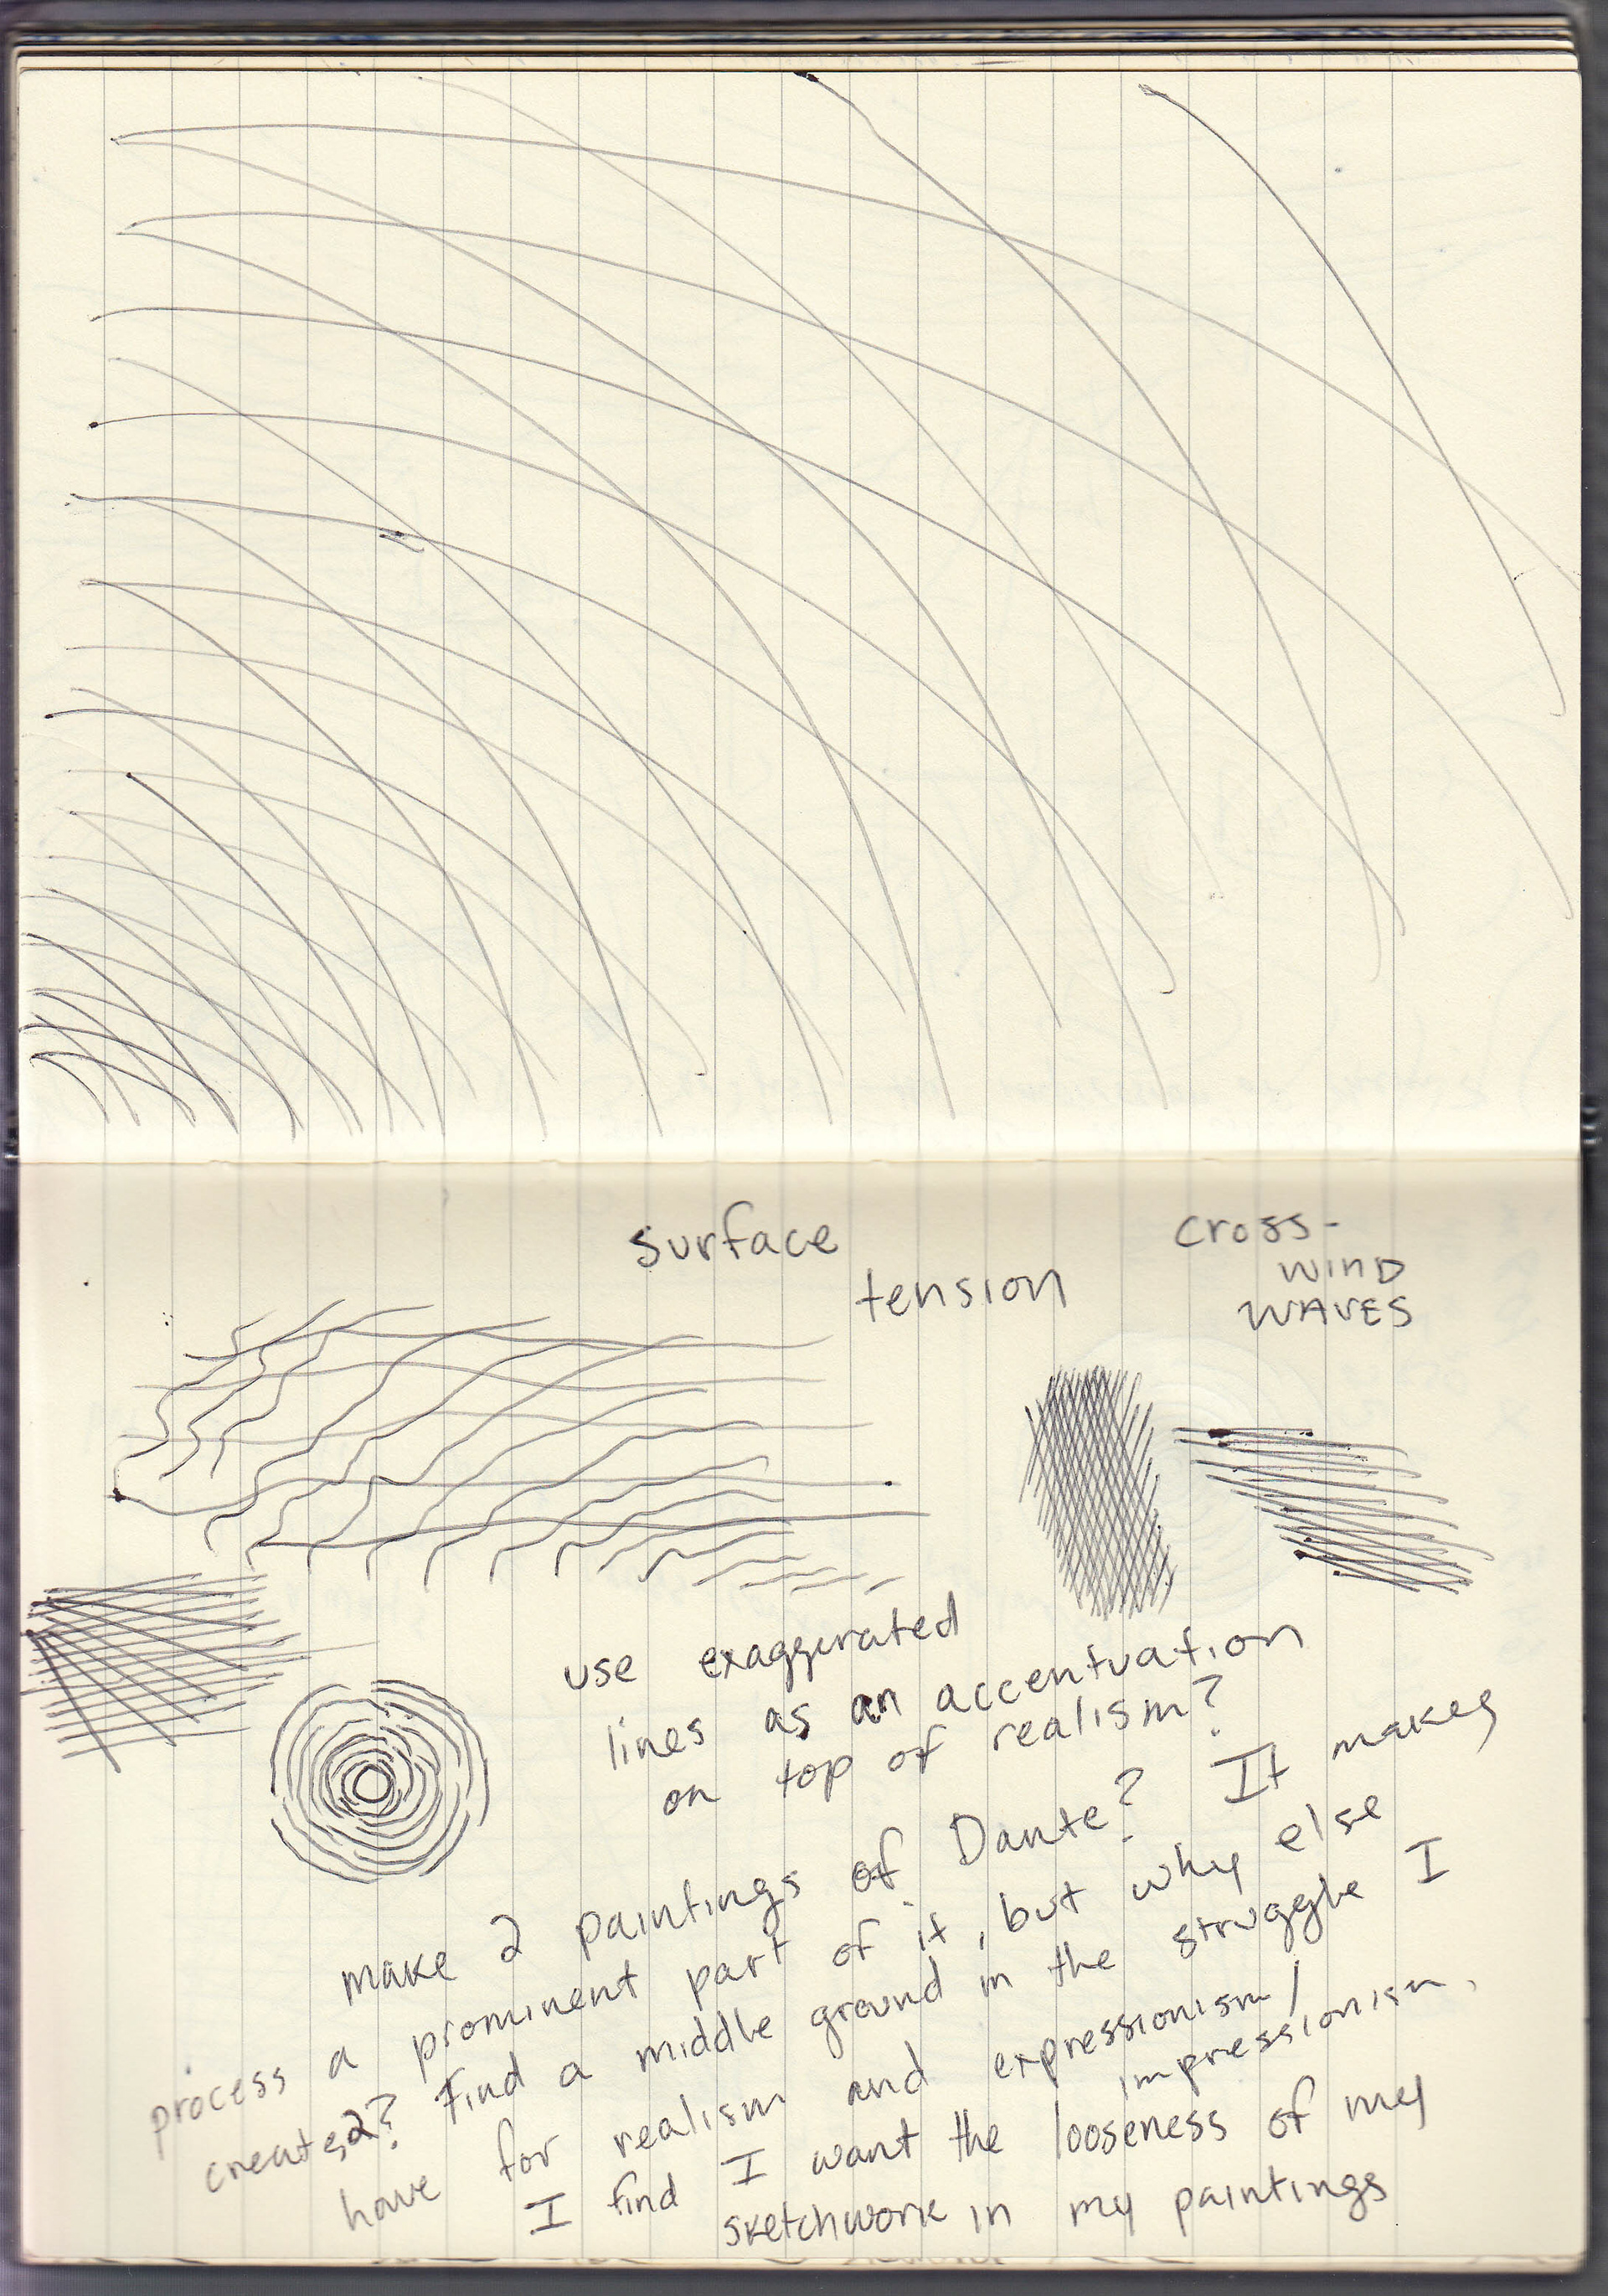 surface
tension
cross-
WIND
WAVES
use exaggerated
lines as an accentuation
on top of realism?
make 2 paintings of Dante? It makes
process a prominent part of it, but why else
create 2? Find a middle ground in the struggle I
have for realism and expressionism/
impressionism.
I find I want the looseness of my
sketchwork in my paintings